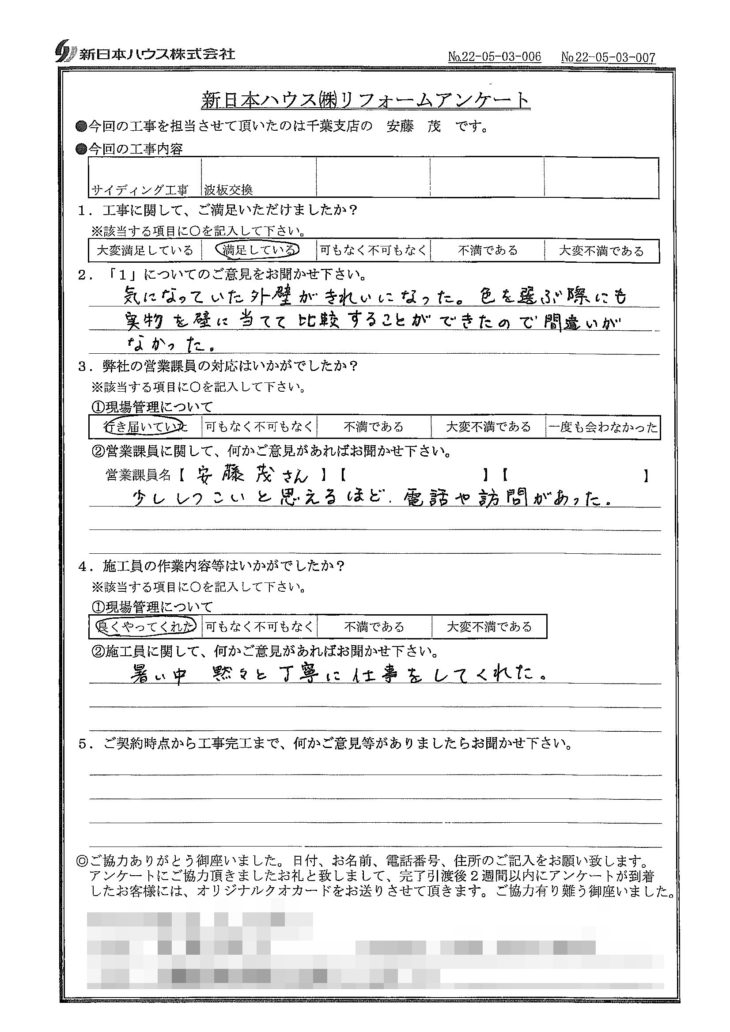 新日本ハウス株式会社 №22-05-03-006 №22-05-03-007
新日本ハウス㈱リフォームアンケート
●今回の工事を担当させて頂いたのは千葉支店の 安藤 茂 です。
●今回の工事内容
サイディング工事 波板交換
1．工事に関して、ご満足いただけましたか？
※該当する項目に○を記入して下さい。
大変満足している 満足している 可もなく不可もなく 不満である 大変不満である
2．「1」についてのご意見をお聞かせ下さい。
気になっていた外壁がきれいになった。色を選ぶ際にも
実物を壁に当てて比較することができたので間違いが
なかった。
3．弊社の営業課員の対応はいかがでしたか？
※該当する項目に○を記入して下さい。
①現場管理について
行き届いていた 可もなく不可もなく 不満である 大変不満である 一度も会わなかった
②営業課員に関して、何かご意見があればお聞かせ下さい。
営業課員名【 安藤茂さん 】【 】【 】
少ししつこいと思えるほど、電話や訪問があった。
4．施工員の作業内容等はいかがでしたか？
※該当する項目に○を記入して下さい。
①現場管理について
良くやってくれた 可もなく不可もなく 不満である 大変不満である
②施工員に関して、何かご意見があればお聞かせ下さい。
暑い中 黙々と丁寧に仕事をしてくれた。
5．ご契約時点から工事完工まで、何かご意見等がありましたらお聞かせ下さい。
◎ご協力ありがとう御座いました。日付、お名前、電話番号、住所のご記入をお願い致します。
アンケートにご協力頂きましたお礼と致しまして、完了引渡後２週間以内にアンケートが到着
したお客様には、オリジナルクオカードをお送りさせて頂きます。ご協力有り難う御座いました。